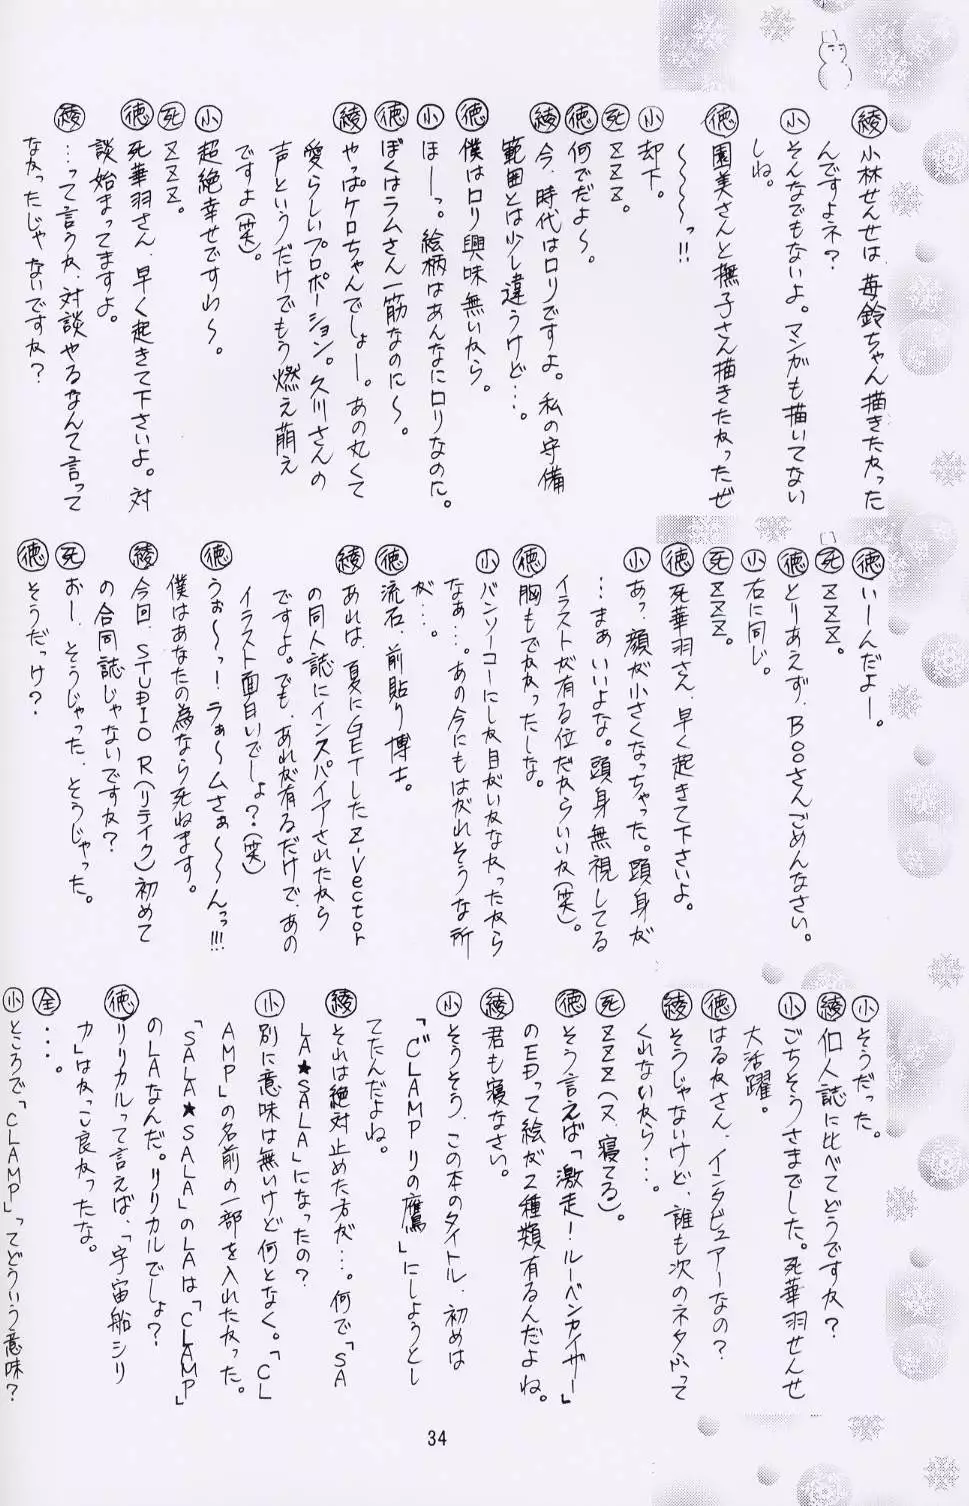 綾 小林せんせは、苺鈴ちゃん描きたかった
んですよネ？
小 そんなでもないよ。マンガも描いてない
しね。
徳 園美さんと撫子さん描きたかったぜ
〜〜〜〜っ!!
小 却下。
死 ZZZ。
徳 何でだよ〜。
綾 今、時代はロリですよ。私の守備
範囲とは少し違うけど…。
徳 僕はロリ興味無いから。
小 ほーっ。絵柄はあんなにロリなのに。
徳 ぼくはラムさん一筋なのに〜。
綾 やっぱケロちゃんでしょー。あの丸くて
愛らしいプロポーション。久川さんの
声というだけでもう燃え萌え
ですよ（笑）。
小 超絶幸せですわ〜。
死 ZZZ。
徳 死華羽さん、早く起きて下さいよ。対
談始まってますよ。
綾 …って言うか、対談やるなんて言って
なかったじゃないですか？
徳 いーんだよー。
死 ZZZ。
徳 とりあえず、BOOさんごめんなさい。
小 右に同じ。
死 ZZZ。
徳 死華羽さん、早く起きて下さいよ。
小 あっ、顔が小さくなっちゃった。頭身が
…まぁいいよな。頭身無視してる
イラストが有る位だからいいか（笑）。
徳 胸もでかかったしな。
小 バンソーコーにしか目がいかなかったから
なぁ…。あの今にもはがれそうな所
が…。
徳 流石、前貼り博士。
綾 あれは、夏にGETしたZ-Vector
の同人誌にインスパイアされたから
ですよ。でも、あれが有るだけで、あの
イラスト面白いでしょ？（笑）
徳 うぉ〜っー！ラぁ〜ムさぁ〜〜〜んっ!!!
僕はあなたの為なら死ねます。
綾 今回、STUDIO R（リテイク）初めて
の合同誌じゃないですか？
死 おー、そうじゃった、そうじゃった。
徳 そうだっけ？
小 そうだった。
綾 個人誌に比べてどうですか？
小 ごちそうさまでした。死華羽せんせ
大活躍。
徳 はるかさん、インタビュアーなの？
綾 そうじゃないけど、誰も次のネタふって
くれないから…。
死 ZZZ（又、寝てる）。
徳 そう言えば「激走！ルーベンカイザー」
のEDって絵が2種類有るんだよね。
綾 君も寝なさい。
小 そうそう、この本のタイトル、初めは
「CLAMPリの鷹」にしようとし
てたんだよね。
綾 それは絶対止めた方が…。何で「SA
LA★SALA」になったの？
小 別に意味は無いけど何となく。「CL
AMP」の名前の一部を入れたかった。
「SALA★SALA」のLAは「CLAMP」
のLAなんだ。リリカルでしょ？
徳 リリカルって言えば、「宇宙船シリ
カ」はかっこ良かったな。
全 …。
小 ところで「CLAMP」ってどういう意味？
34